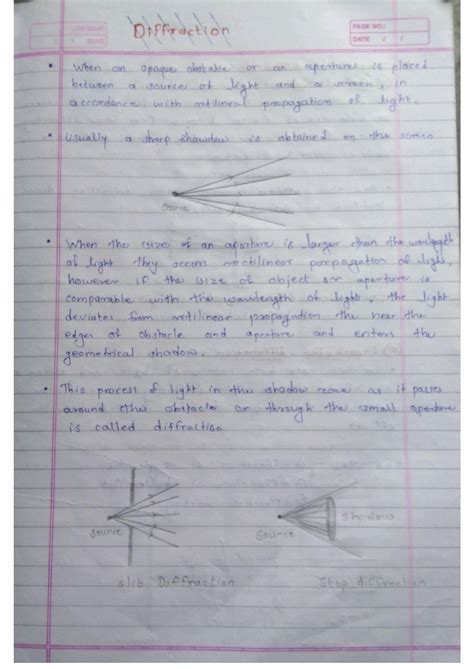 Diffraction
PAGE NO.:
DATE / /
• When an opaque obstable or an aperture is placed
between a source of light and a screen, in
accordence with retilineal propagation of light.
• Usually a sharp shawdow is obtained on the screen
source
• When the size of an aperture is larger than the wavelength
of light they occurs rectilinear porpagation of light,
however if the size of object or aperture is
comparable with the wavelength of light, the light
deviates from retilinear propagation the near the
edges of obstacle and aperture and enters the
geometrical shadow.
• This process of light in the shadow zone as it passes
around the obstacle or through the small aperture
is called diffraction.
source
source
Shadow
slit Diffraction
Stop diffraction